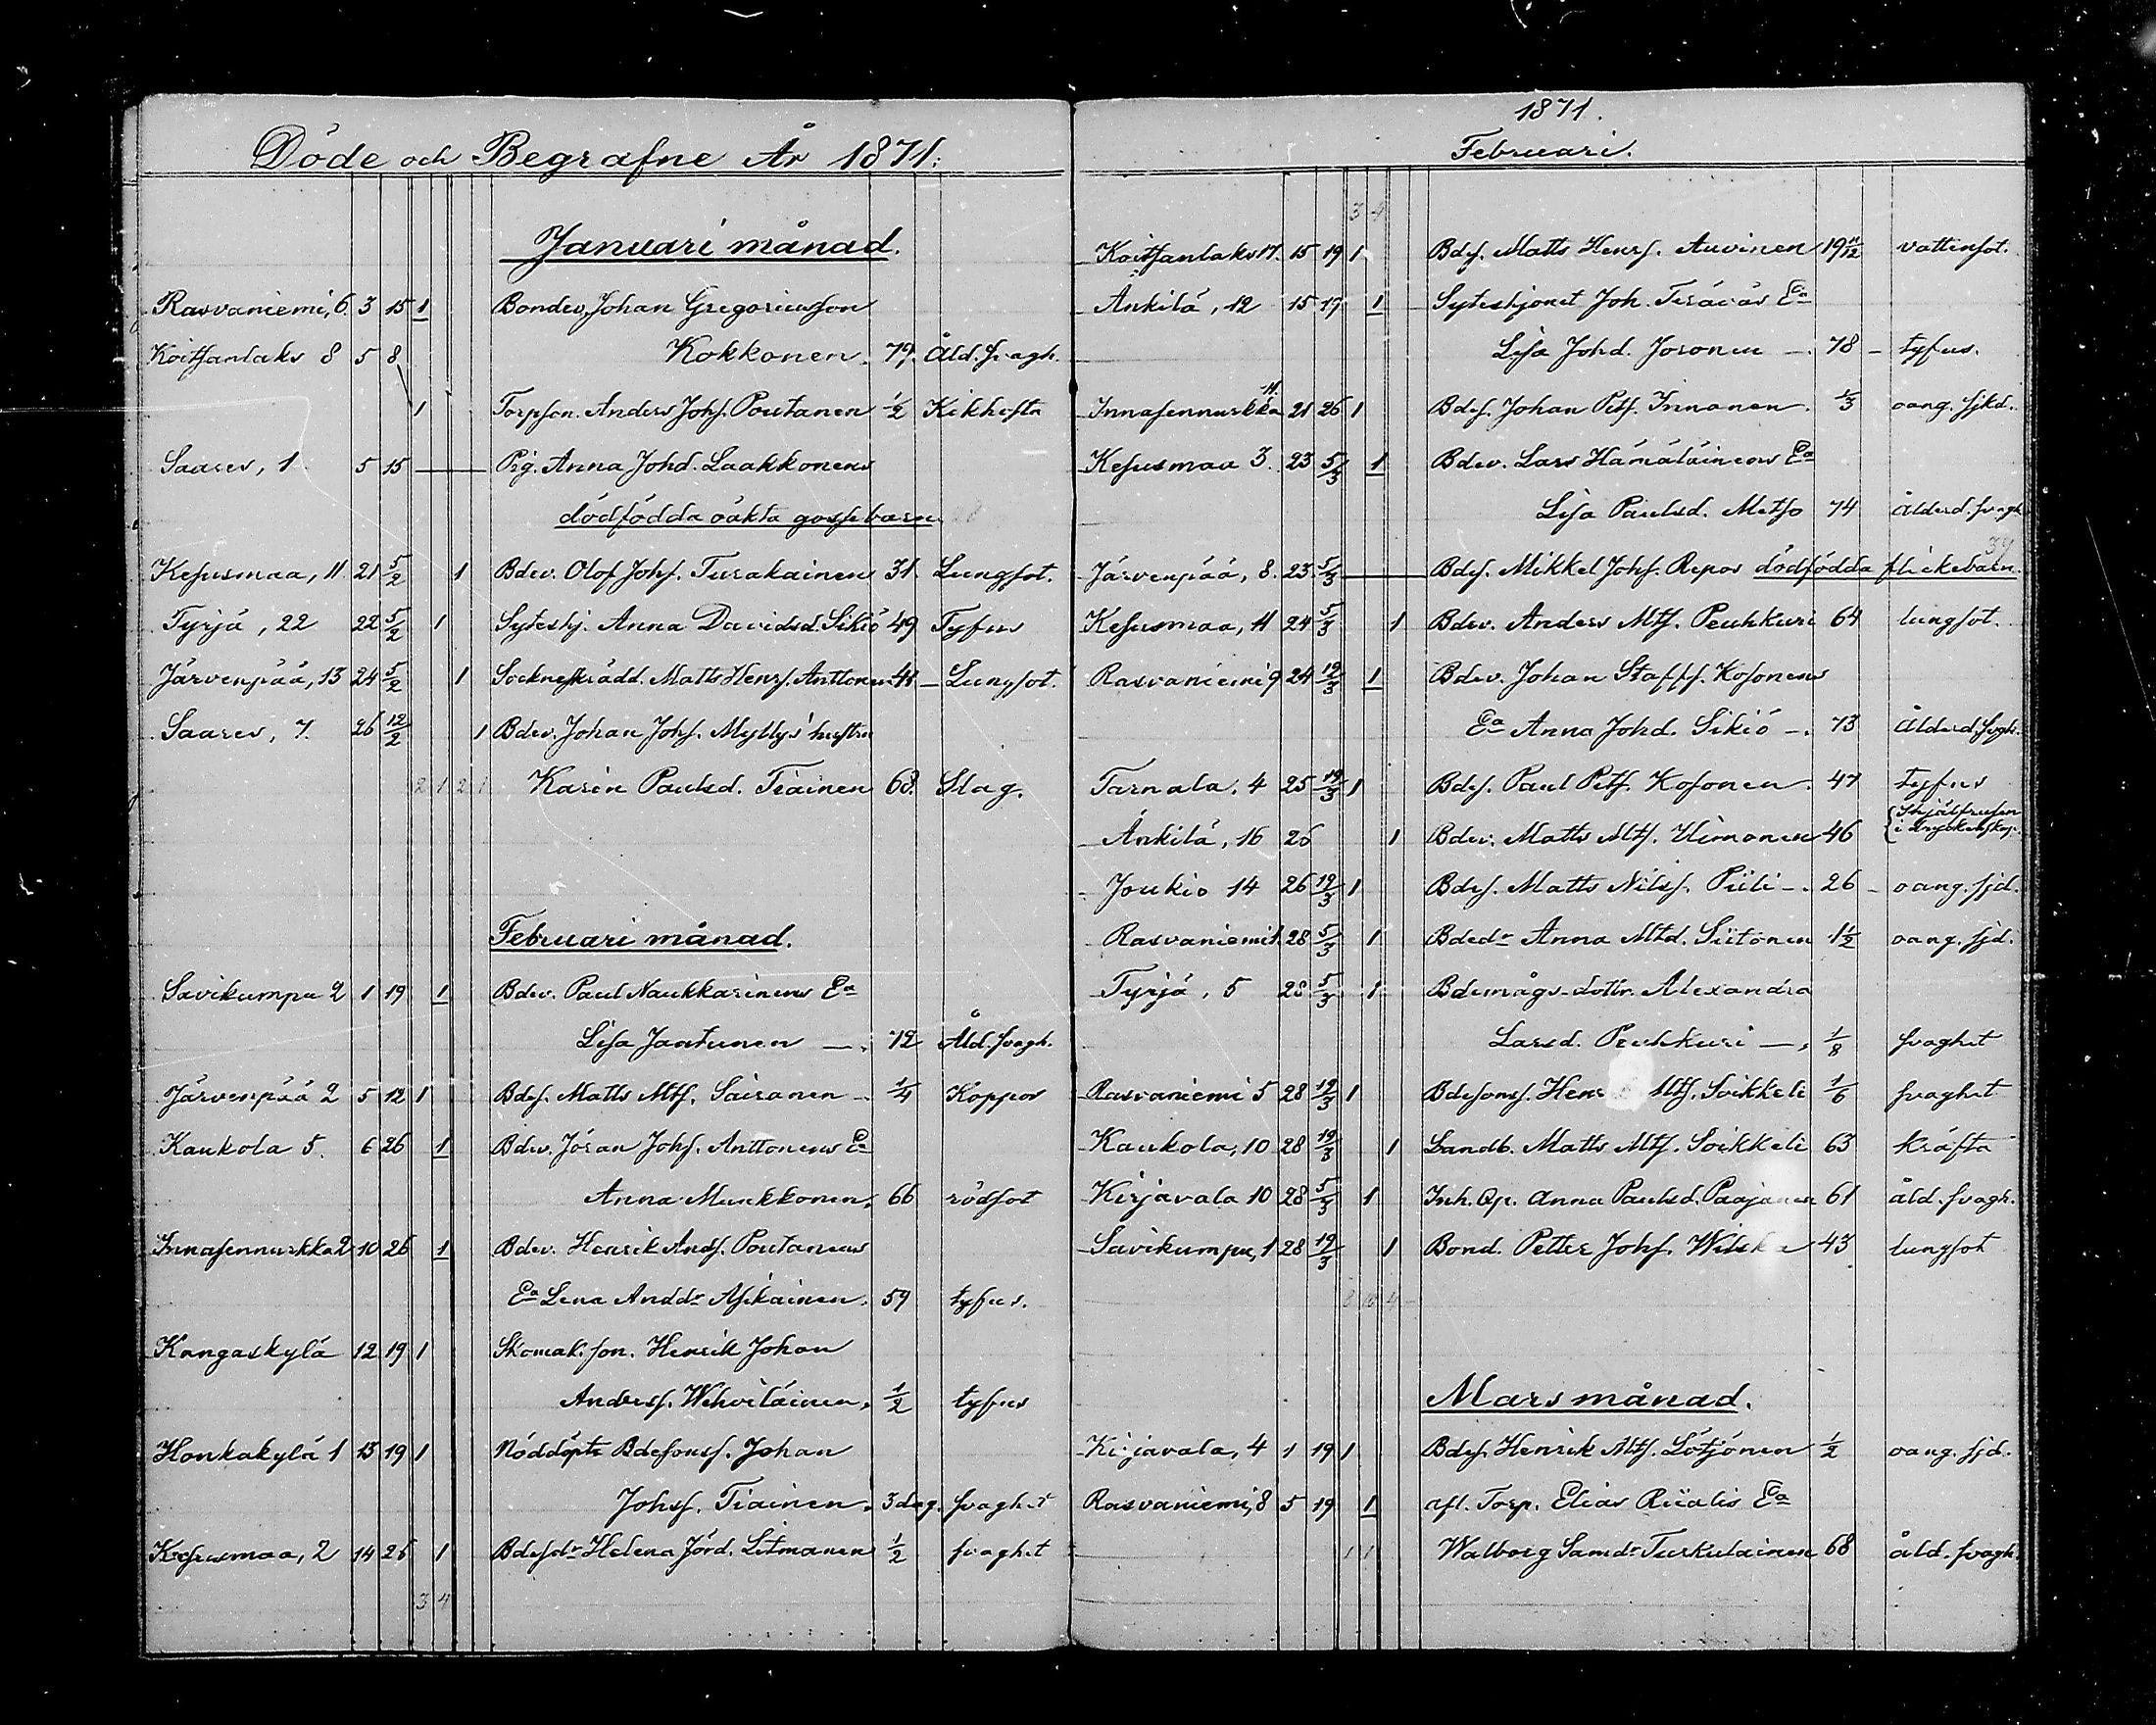 Döde och Begrafne År 1871.
Januari månad.
Rasvaniemi, 6. 3 15 1 Bondev. Johan Gregoriusson
Koitsanlaks 8 5 8 Kokkonen. 79. Åld. svagh.
1 Torpson. Anders Johs. Poutanen 1/2 Kikhosta
Saares, 1 5 15 — Pig. Anna Johd. Laakkonens
dödfödda oäkta gossebarn
Kesusmaa, 11. 21 5/2 1 Bdev. Olof Johs. Turakainen 31. Lungsot.
Tyrjä, 22 22 5/2 1 Syteshj. Anna Davidsd. Sikiö 49 Tyfus
Järvenpää, 13 24 5/2 1 Sockneskrädd. Matts Henrs. Anttonen 41 Lungsot.
Saares, 7. 26 12/2 1 Bdev. Johan Johs. Myllys' hustru
2 1 2 1 Karin Paulsd. Tiainen 68. Slag.
Februari månad.
Savikumpu 2 1 19 1 Bdev. Paul Naukkarinens Ea
Lisa Jantunen —. 72 Åld. svagh.
Järvenpää 2 5 12 1 Bds. Matts Mts. Sairanen - 1/4 Koppor
Kaukola 5. 6 26 1 Bdev. Jöran Johs. Anttonens Ea
Anna Munkkonen. 66 rödsot
Innasennurkka 2 10 26 1 Bdev. Henrik Ands. Poutanens
Ea Lena Anddr Asikainen. 59 tyfus.
Kangaskylä 12 19 1 Skomak. son. Henrik Johan
Anders. Wehviläinen. 1/2 tyfus
Honkakylä 1 13 19 1 Nöddöpte Bdesons. Johan
Johs. Tiainen. 3 dag. svaghet
Kesusmaa, 2 14 26 1 Bdesdr Helena Jörd. Litmanen 1/2 svaghet
3 4
1871.
Februari.
3 4
Koitsanlaks 17. 15 19 1 Bdes. Matts Henrs. Auvinen 19 11/12 vattensot.
Änkilä, 12 15 19 1 Syteshjonet Joh. Teräväs Ea
Lisa Johd. Joronen —. 78 - tyfus.
Innasennurkka 11. 21 26 1 Bdes. Johan Pets. Innanen. 1/3 oang. sjkd.
Kesusmaa 3. 23 5/3 1 Bdev. Lars Hämäläinens Ea
Lisa Paulsd. Metso 74 Ålderd. svagh
Järvenpää, 8. 23 5/3 — Bdes. Mikkel Johs. Repos dödfödda flickebarn.
Kesusmaa, 11 24 5/3 1 Bdev. Anders Mts. Peuhkuri 64 lungsot.
Rasvaniemi 9 24 19/3 1 Bdev. Johan Staffs. Kosonens
Ea Anna Johd. Sikiö —. 73 Ålderd. svgh.
Tarnala. 4 25 19/3 1 Bdes. Paul Pets. Kosonen. 47 tyfus
Änkilä, 16 26 1 Bdev. Matts Mts. Uimonen 46 {Ihjälfrusen i dryckenskap.
Joukio 14 26 19/3 1 Bdes. Matts Nilss. Piili —. 26 - oang. sjd.
Rasvaniemi 1. 28 5/3 1 Bdedr Anna Mtd. Siitonen 1 1/2 oang. sjd.
Tyrjä, 5 28 5/3 1 Bdemågs-dottr. Alexandra
Larsd. Peuhkuri —, 1/8 svaghet
Rasvaniemi 5 28 19/3 1 Bdesons. Henr Mts. Soikkeli 1/6 svaghet
Kaukola, 10 28 19/3 1 Landb. Matts Mts. Soikkeli 63 kräfta
Kirjavala 10 28 5/3 1 Inh. Qp. Anna Paulsd. Paajanen 61 åld. svagh.
Savikumpu, 1 28 19/3 1 Bond. Petter Johs. Wilska 43 lungsot
8 10 4
Mars månad.
Kirjavala, 4 1 19 1 Bdes. Henrik Mts. Lötjönen 1/2 oang. sjd.
Rasvaniemi, 8 5 19 1 afl. Torp. Elias Riialis Ea
1 1 Walborg Samdr Turkulainen 68 åld. svagh.